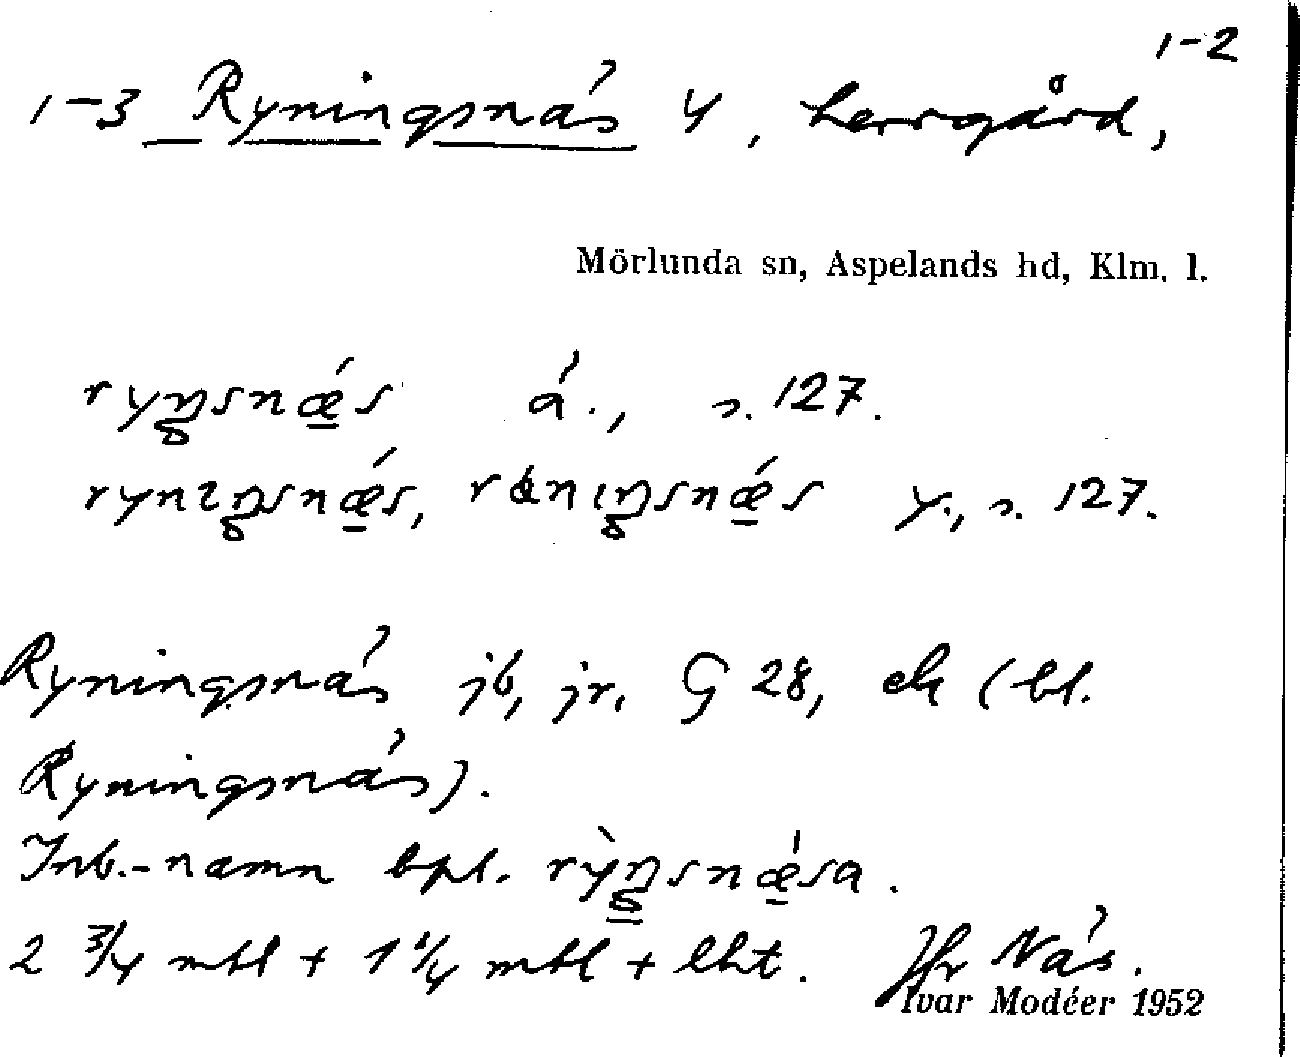 1-2
1-3 Ryningsnäs 4, herrgård,
Mörlunda sn, Aspelands hd, Klm. l.
ryŋsnǽs á., s. 127.
rynıŋsnǽs, rånıŋsnǽs y., s. 127.
Ryningsnäs jb, jr, G 28, ek (bl.
Ryningsnäs).
Inb.-namn bpl. rỳŋsnæ̍sa.
2 3/4 mtl + 1 1/4 mtl + lht. Jfr Näs.
Ivar Modéer 1952